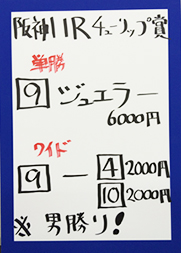 阪神11Rチューリップ賞
単勝
9 ジュエラー
6000円
ワイド
9 — 4 2000円
10 2000円
※ 男勝り！